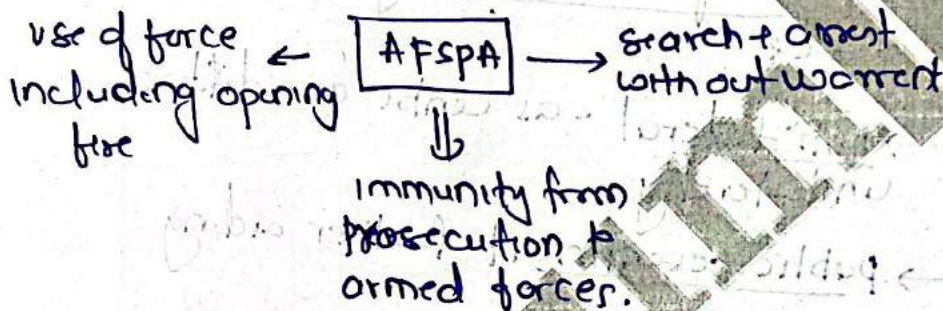 use of force
including opening
fire
← AFSPA →
search + arrest
without warrent
⇓
immunity from
prosecution to
armed forces.